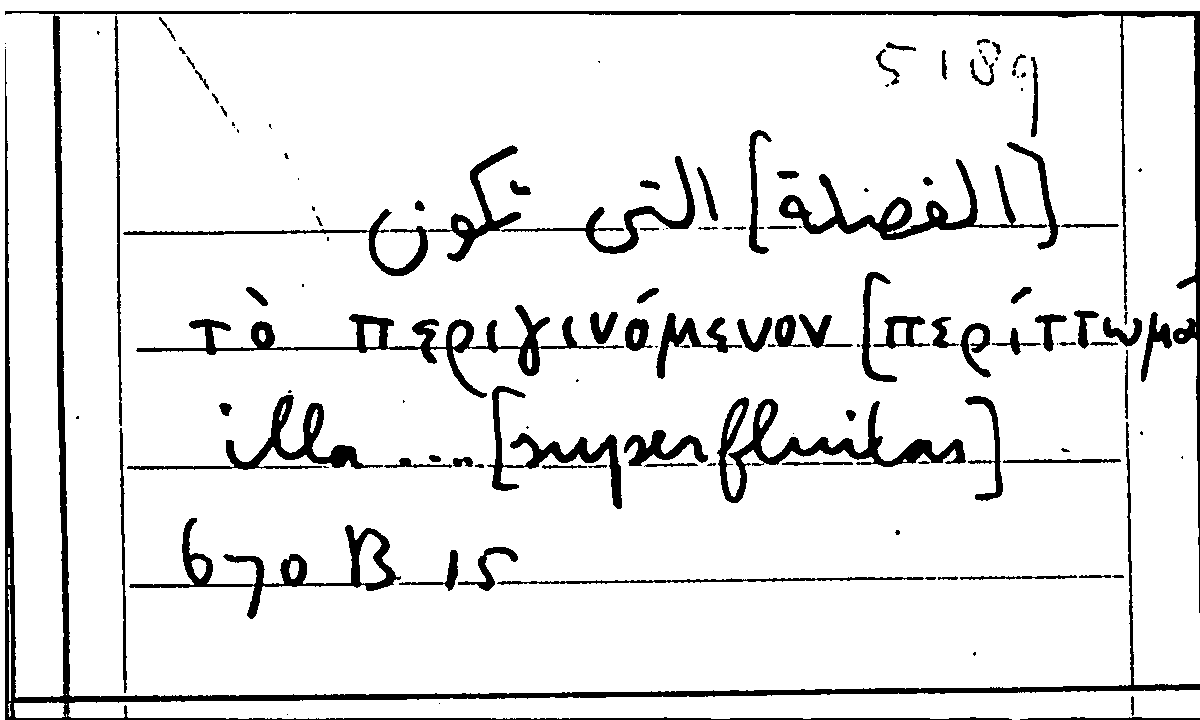 5189
[الفضلة] التى تكون
τὸ περιγινόμενον [περίττωμα
illa .... [superfluitas]
670 B 15